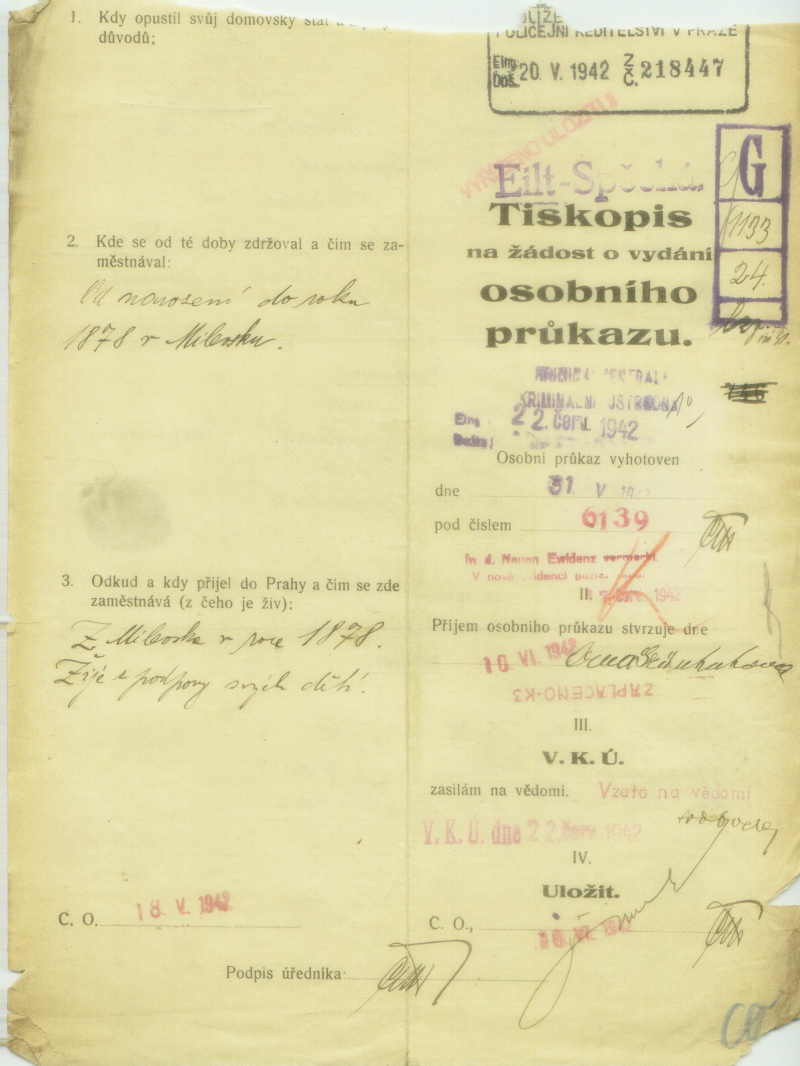 1. Kdy opustil svůj domovský stát a
důvodů;
2. Kde se od té doby zdržoval a čím se za-
městnával:
Od narození do roku
1878 v Milevsku.
3. Odkud a kdy přijel do Prahy a čím se zde
zaměstnává (z čeho je živ):
Z Milevska v roce 1878.
Žije z podpory svých dětí.
C. O. 18. V. 1942
Podpis úředníka
POLICEJNÍ ŘEDITELSTVÍ V PRAZE
Eing.
Doš. 20. V. 1942 Z Č. 218447
Eilt-Spěchá.
G
1133
24.
Tiskopis
na žádost o vydání
osobního
průkazu.
KRIMINÁLNÍ ÚSTŘEDNA
Eing.
22. Červ. 1942
Osobní průkaz vyhotoven
dne 31 V 1942
pod číslem 6139
In d. Neuen Evidenz vermerkt
V nové evidenci
II.
1942
Příjem osobního průkazu stvrzuje dne
10. VI. 1942
ZAPLACENO-K3
III.
V. K. Ú.
zasílám na vědomí. Vzato na vědomí
V. K. Ú. dne 22. Červ. 1942
IV.
Uložit.
C. O., 1942